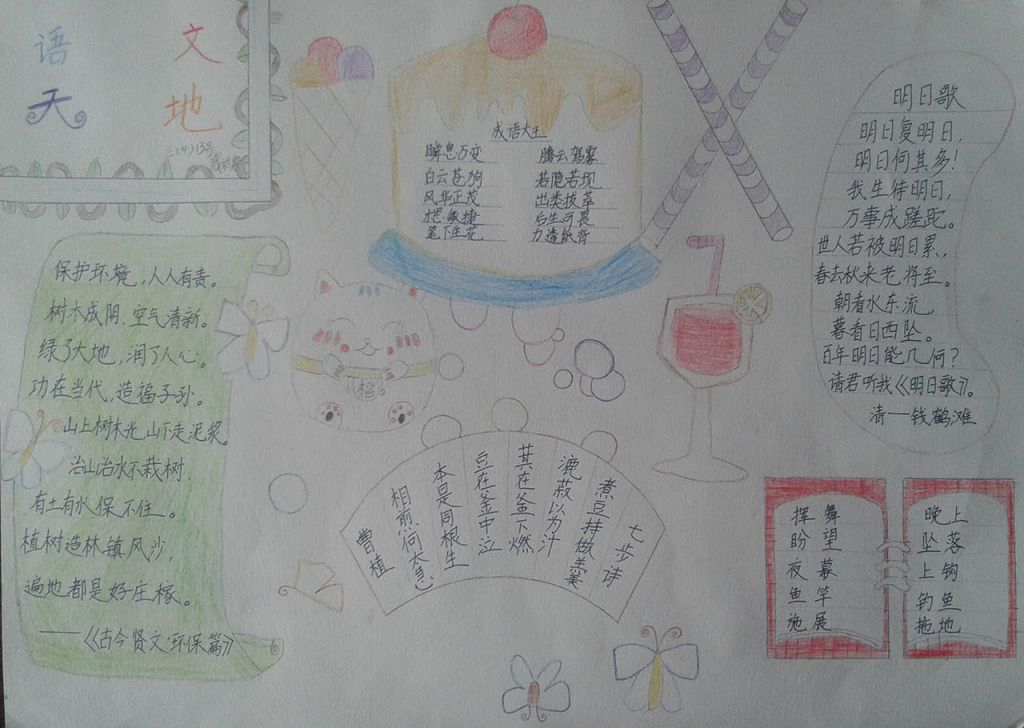 语 文
天 地
成语大王
瞬息万变 腾云驾雾
白云苍狗 若隐若现
风华正茂 出类拔萃
敏捷 后生可畏
笔下生花 力透纸背
明日歌
明日复明日，
明日何其多！
我生待明日，
万事成蹉跎。
世人若被明日累，
春去秋来老将至。
朝看水东流，
暮看日西坠。
百年明日能几何？
请君听我《明日歌》。
清一钱鹤滩
保护环境，人人有责。
树木成阴，空气清新。
绿了大地，润了人心。
功在当代，造福子孙。
山上树木光，山下走泥浆。
治山治水不栽树，
有土有水保不住。
植树造林镇风沙，
遍地都是好庄稼。
——《古今贤文·环保篇》
福
七步诗
煮豆持做羹
漉菽以为汁
萁在釜下燃
豆在釜中泣
本是同根生
相煎何太急
曹植
挥舞
盼望
夜幕
鱼竿
施展
晚上
坠落
上钩
钓鱼
拖地